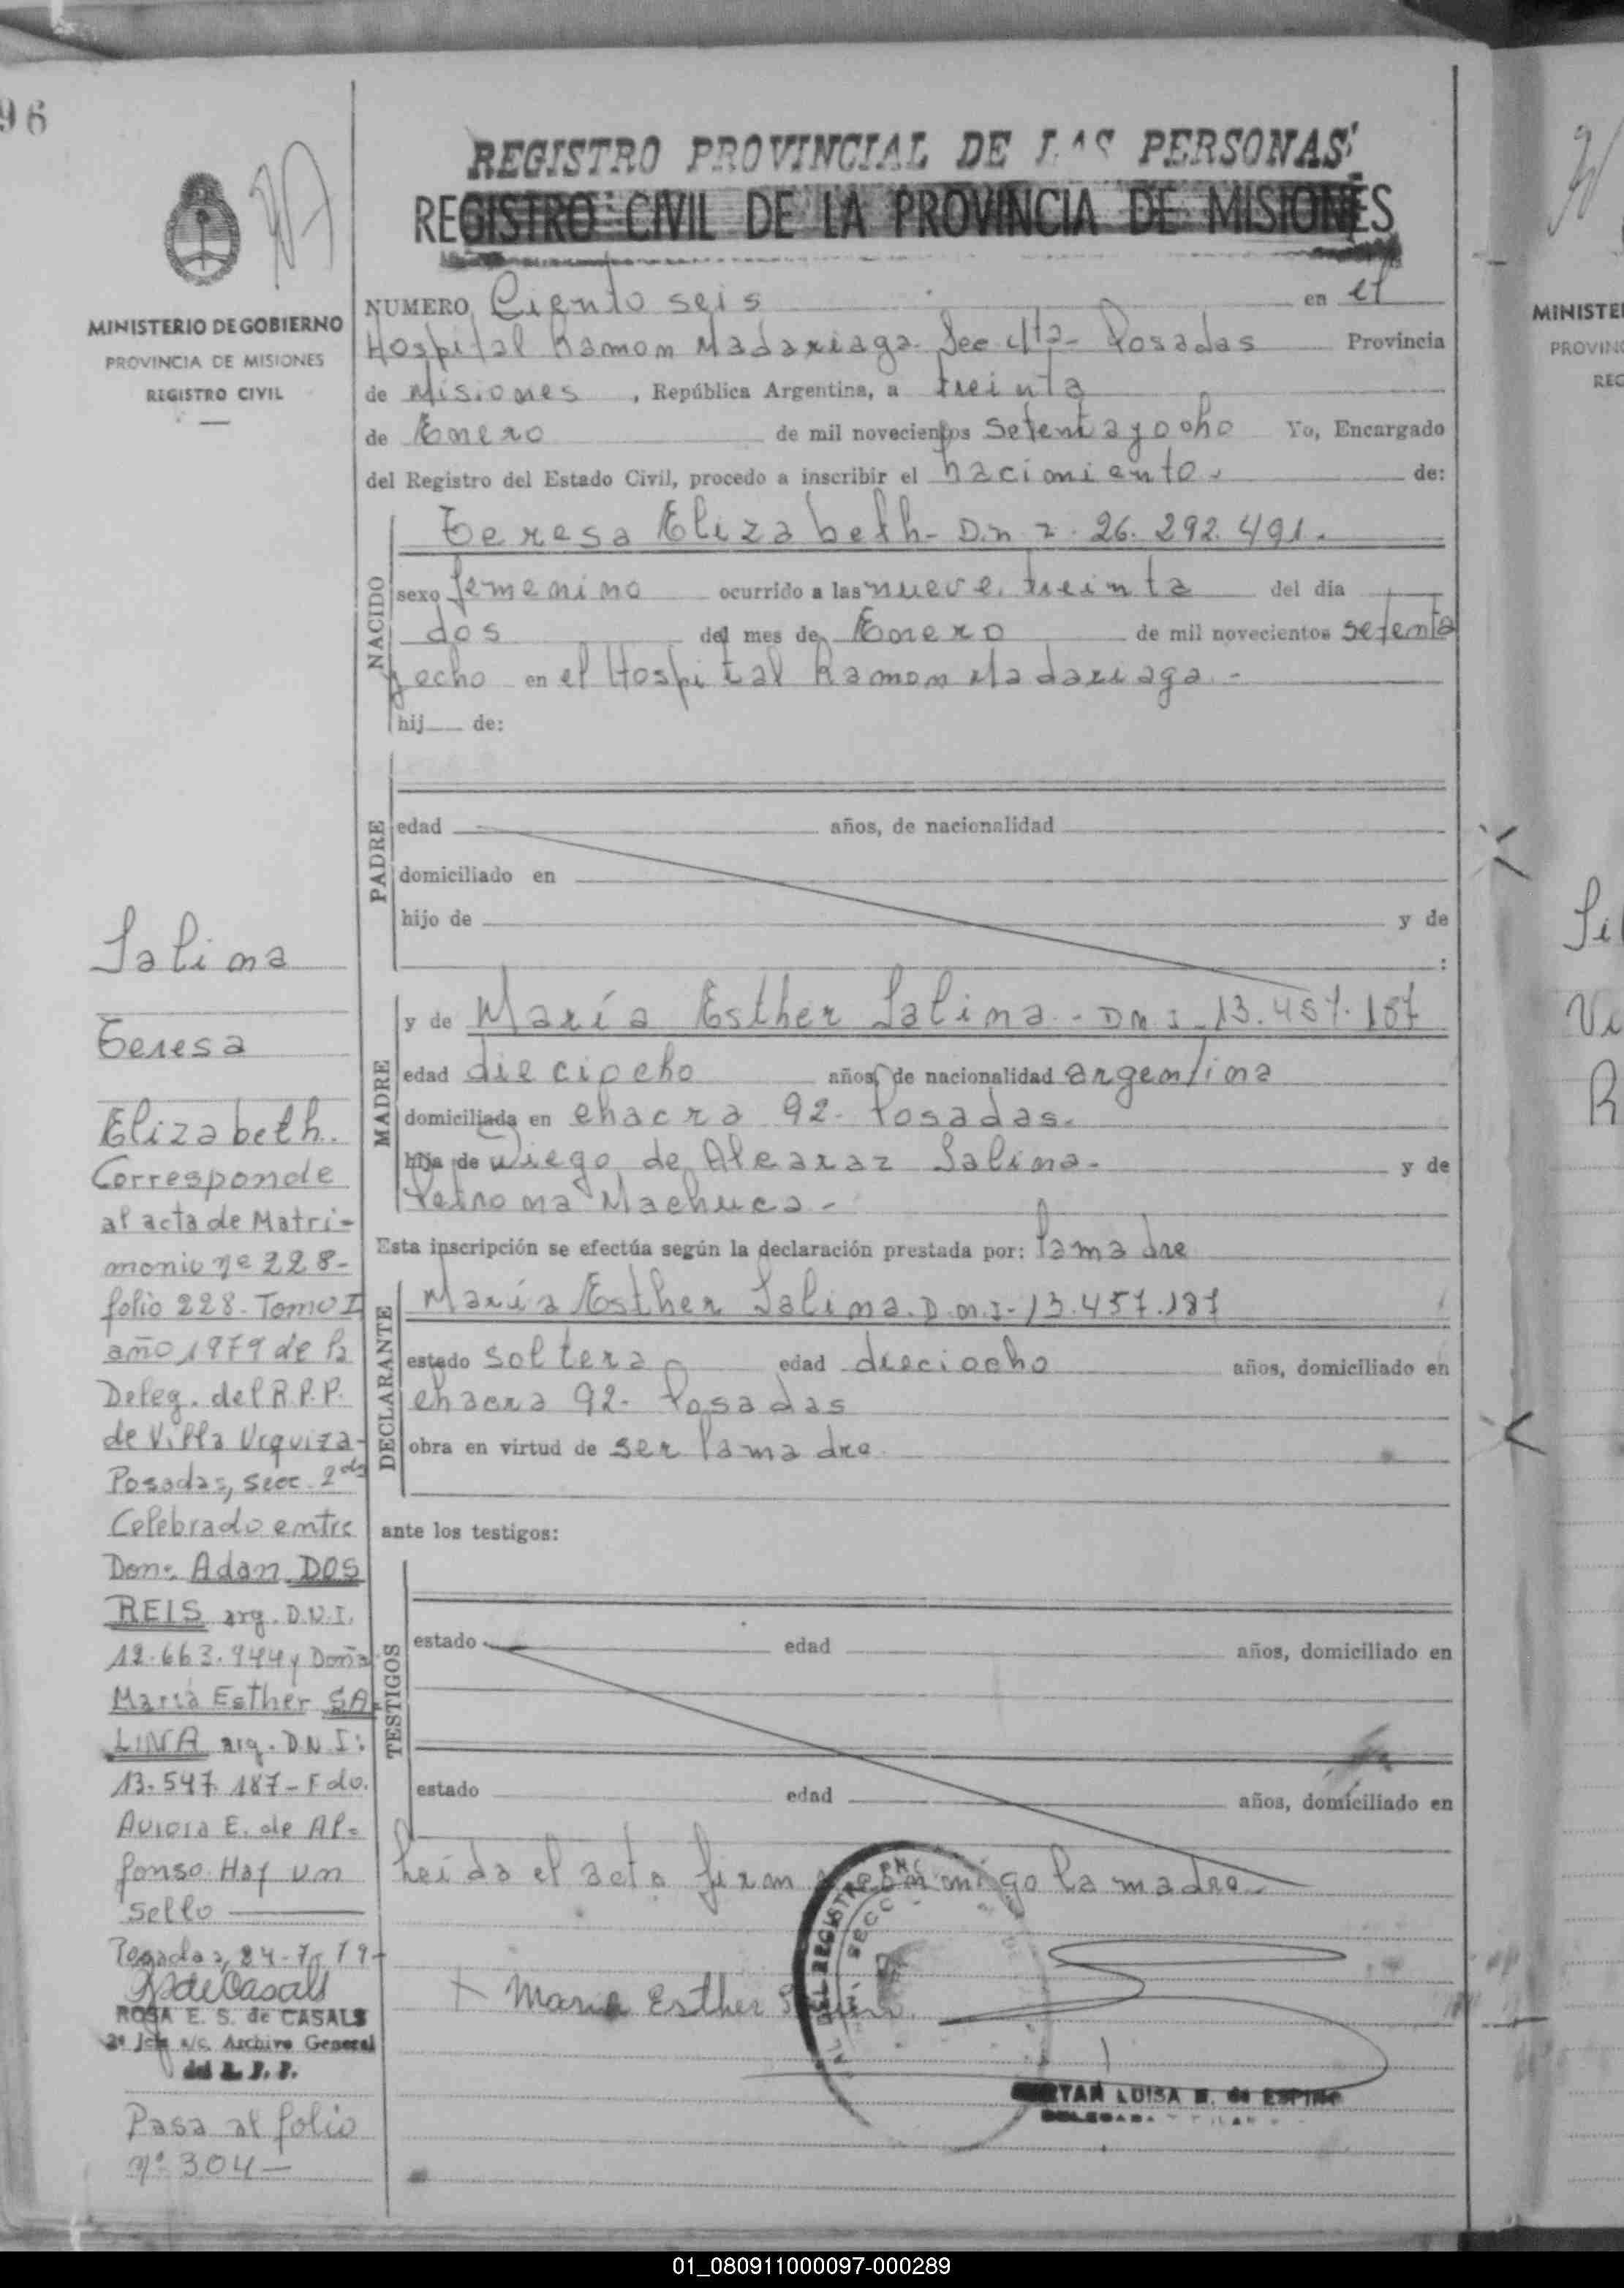 96
REGISTRO PROVINCIAL DE LAS PERSONAS
REGISTRO CIVIL DE LA PROVINCIA DE MISIONES
MINISTERIO DE GOBIERNO
PROVINCIA DE MISIONES
REGISTRO CIVIL
NUMERO Ciento seis en el
Hospital Ramon Madariaga. Sec 4ta- Posadas Provincia
de Misiones , República Argentina, a treinta
de Enero de mil novecientos setentayocho Yo, Encargado
del Registro del Estado Civil, procedo a inscribir el nacimiento. de:
NACIDO
Teresa Elizabeth- D.n 2. 26.292.491.
sexo femenino ocurrido a las nueve. treinta del día
dos del mes de Enero de mil novecientos setenta
yocho en el Hospital Ramon Madariaga.-
hij de:
PADRE
edad años, de nacionalidad
domiciliado en
hijo de y de
:
MADRE
y de María Esther Salina.- DNI-13.457.187
edad dieciocho años, de nacionalidad argentina
domiciliada en chacra 92- Posadas.
hija de Diego de Alcaraz Salina- y de
Petrona Machuca.-
Esta inscripción se efectúa según la declaración prestada por: la madre
DECLARANTE
María Esther Salina. D.N.I-13.457.187
estado soltera edad dieciocho años, domiciliado en
chacra 92- Posadas
obra en virtud de ser la madre
ante los testigos:
TESTIGOS
estado edad años, domiciliado en
estado edad años, domiciliado en
Leida el acta firma conmigo la madre-
+ Maria Esther Salina.
LUISA de ESPIN
Salina
Teresa
Elizabeth.
Corresponde
al acta de Matri-
monio nº 228-
folio 228. Tomo I
año 1979 de la
Deleg. del R.P.P.
de Villa Urquiza-
Posadas, secc. 2da
Celebrado entre
Don: Adan DOS
REIS arg. D.N.I.
12.663.944 y Doña
Maria Esther SA
LINA arg. D.N.I:
13.547.187- Fdo.
Aurora E. de Al=
fonso. Hay un
sello
Posadas, 24-7-79-
ROSA E. S. de CASALS
2º Jefe a/c. Archivo General
del R. P. P.
Pasa al folio
nº 304-
MINISTE
PROVINC
REG
Vi
R
01_080911000097-000289